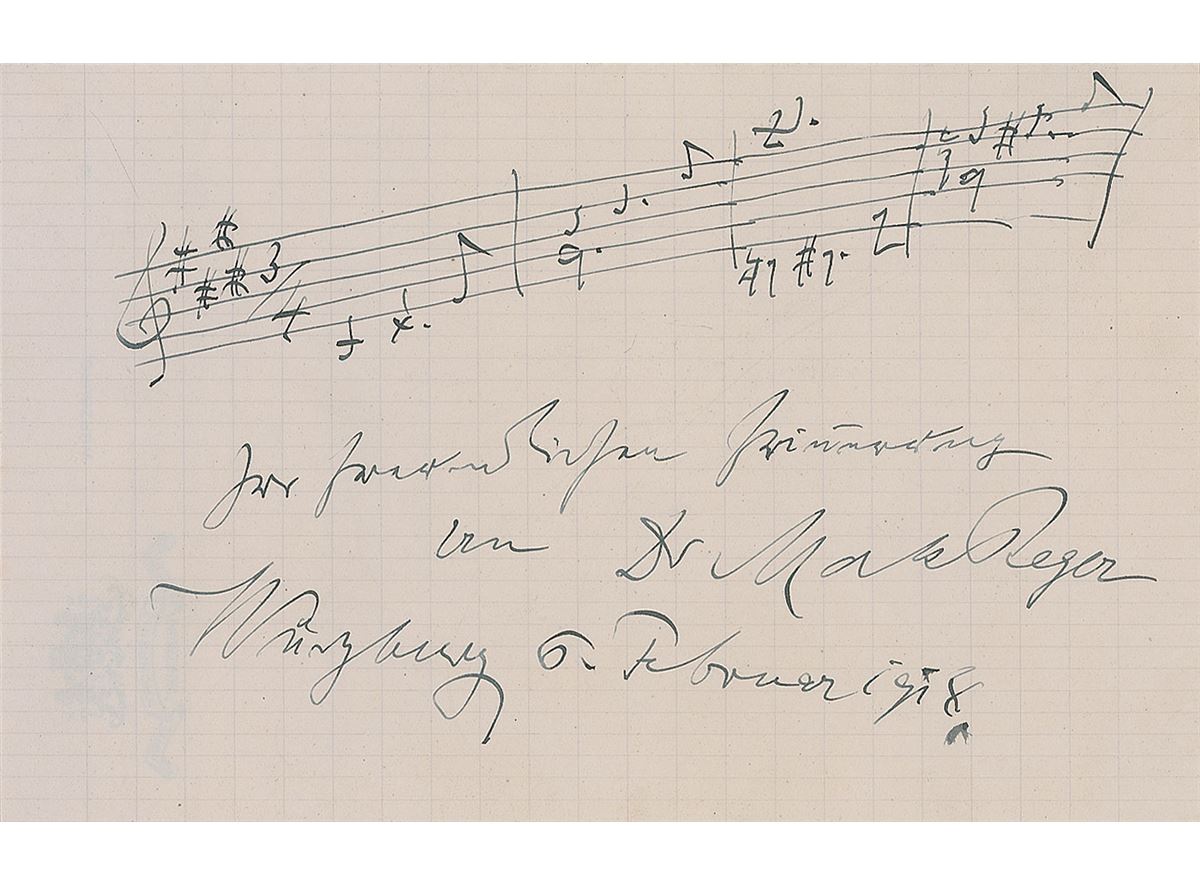 3/4
Zur freundlichen Erinnerung
von Dr Max Reger
Würzburg 6. Februar